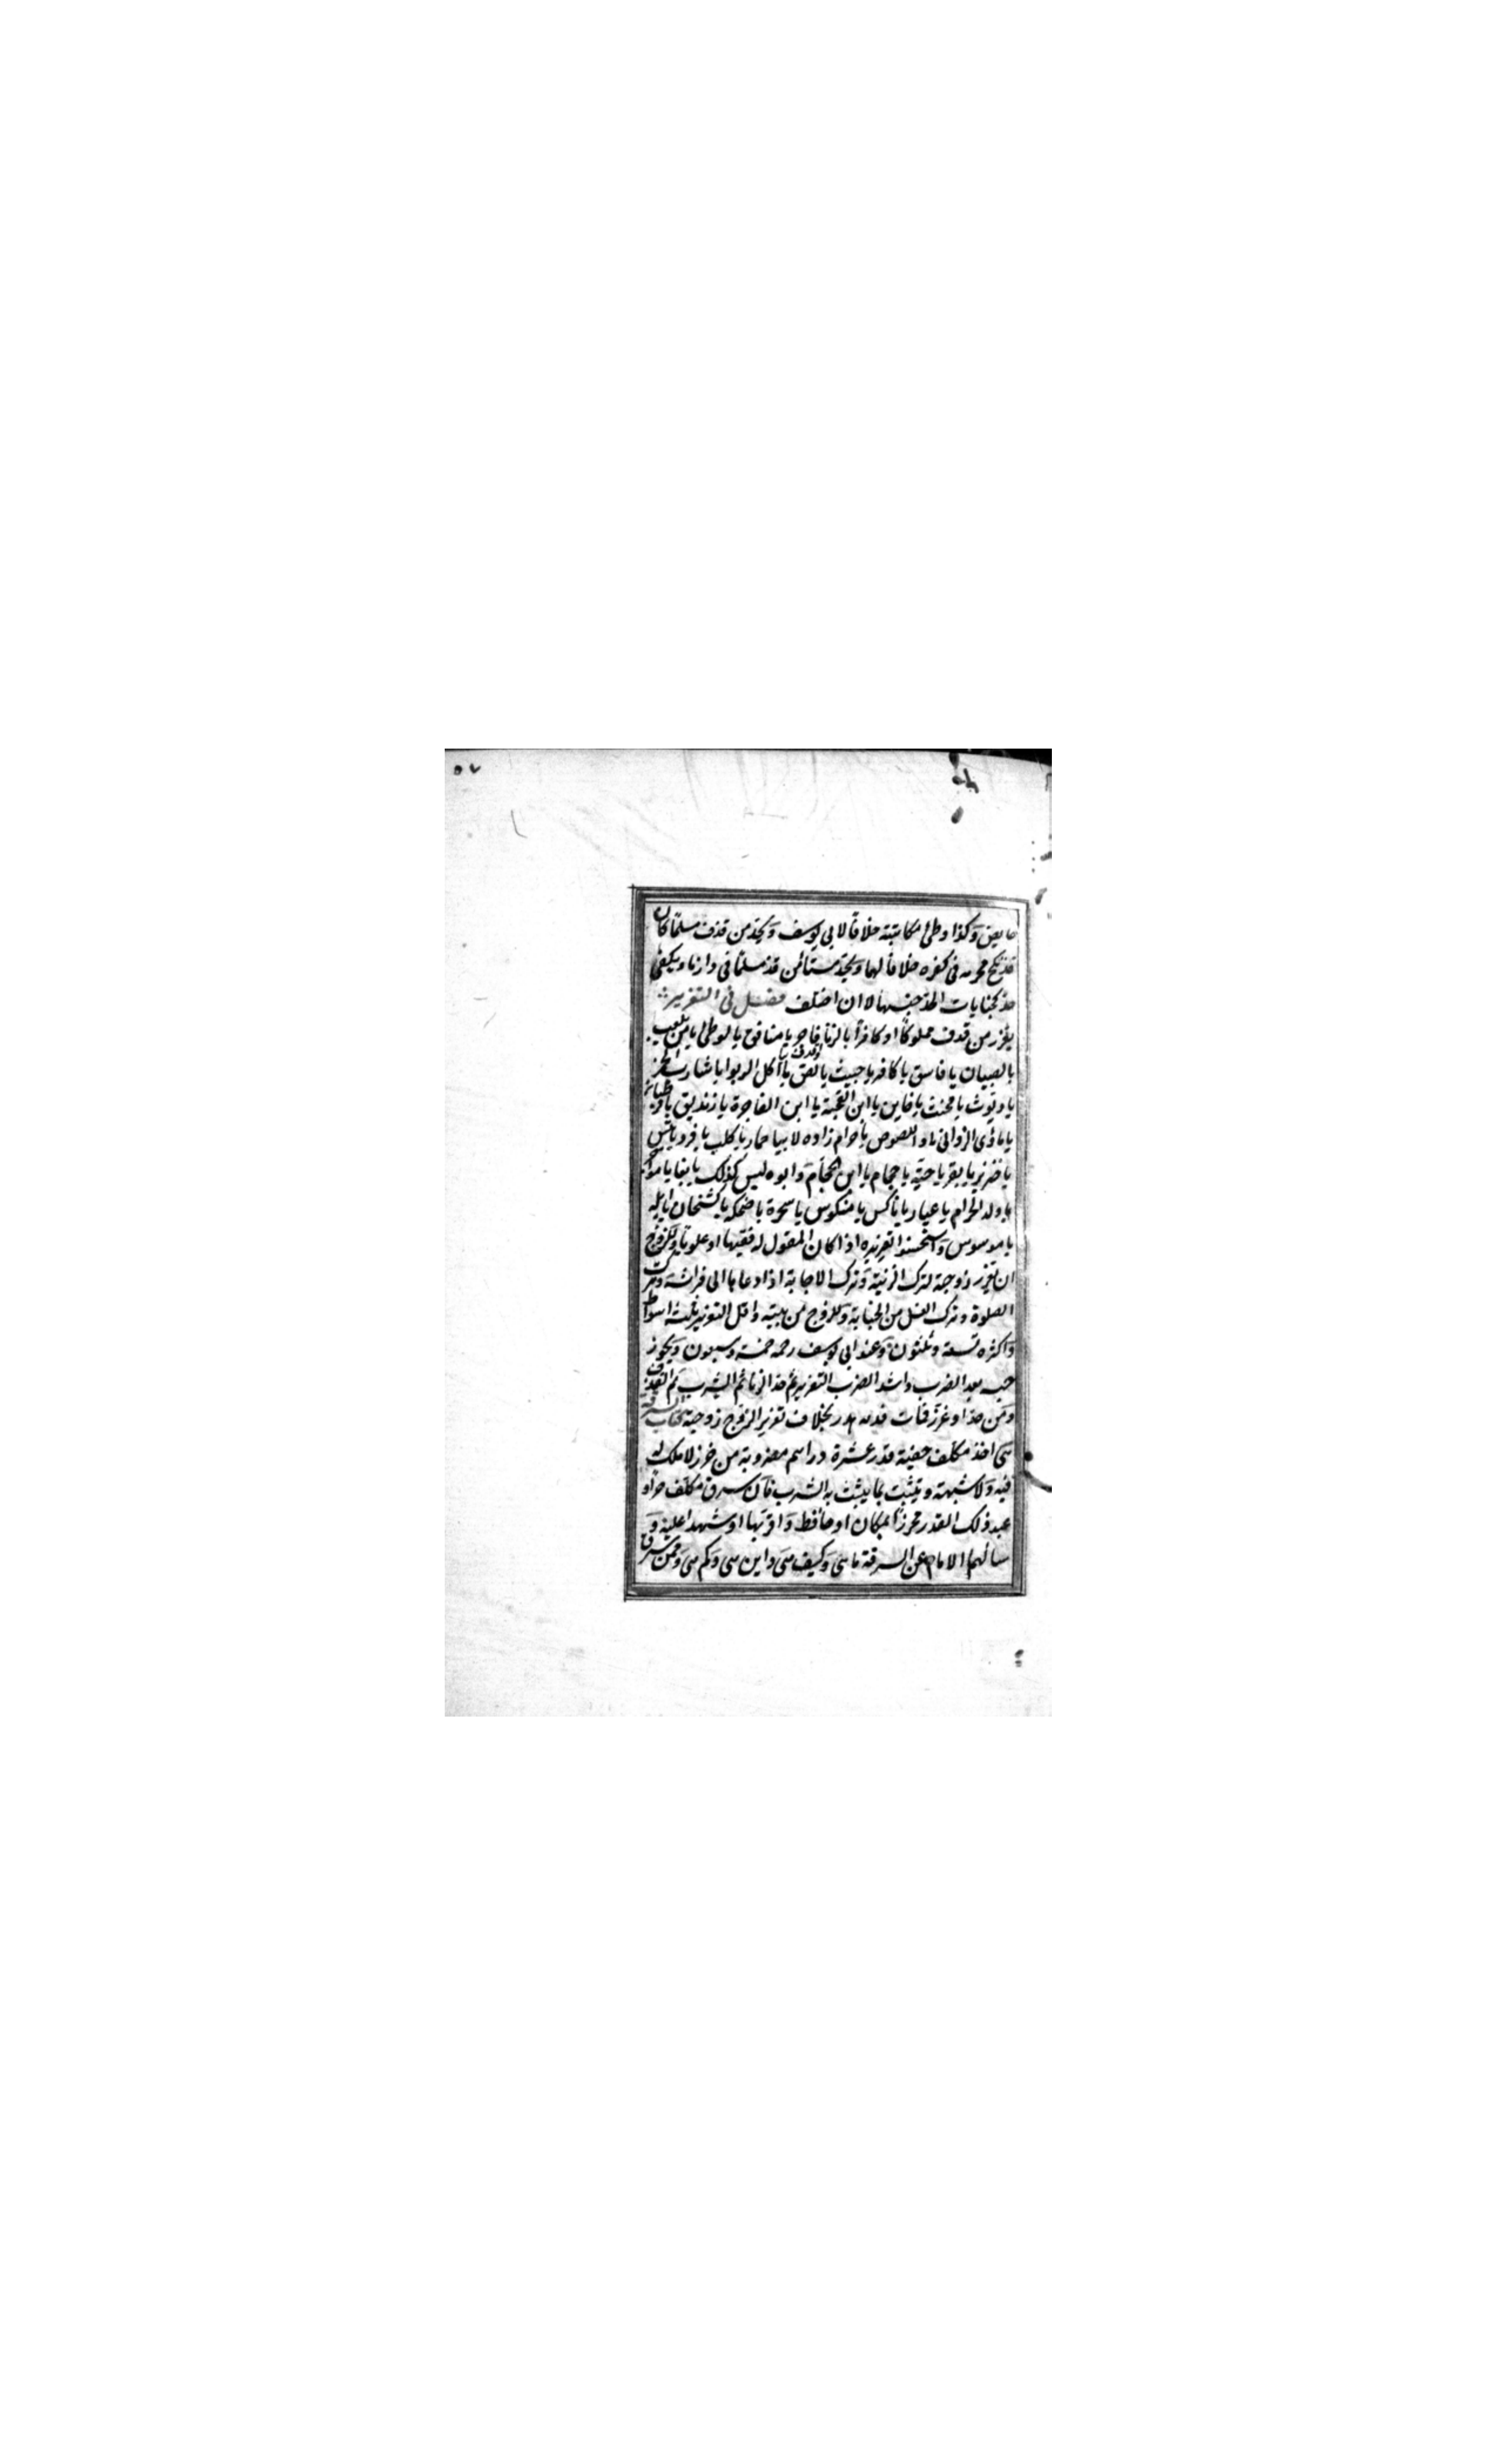 ٥٧
حايض وكذا وطئ مكاتبته خلافا لابى يوسف ويحد من قذف مسلما كان
قد نكح محرمه فى كفره خلافا لهما ويحد مستأمن قذف مسلما فى دارنا ويكفى
حد لجنايات اتحد جنسها لا ان اختلف فصل فى التعزير
يعزر من قذف مملوكا او كافرا بالزنا يا فاجر يا منافق يا لوطى يا من يلعب
بالصبيان يا فاسق يا كافر يا خبيث يا لص يا آكل الربوا يا شارب الخمر
يا ديوث يا مخنث يا خاين يا ابن القحبة يا ابن الفاجرة يا زنديق يا قرطبان
يا مأوى الزوانى او اللصوص يا حرام زاده لا بيا حمار يا كلب يا قرد يا تيس
يا خنزير يا بقر يا حية يا حجام يا ابن الحجام وابوه ليس كذلك يا بغا يا مؤاجر
يا ولد الحرام يا عيار يا ناكس يا منكوس يا سخرة يا ضحكة يا كشخان يا ابله
يا موسوس واستحسنوا تعزيره اذا كان المقول له فقيها او علويا وللزوج
ان يعزر زوجته لترك الزينة وترك الاجابة اذا دعاها الى فراشه وترك
الصلوة وترك الغسل من الجنابة وللخروج من بيته واقل التعزير ثلثة اسواط
واكثره تسعة وثلثون وعند ابى يوسف رحمه خمسة وسبعون ويجوز
حبسه بعد الضرب واشد الضرب التعزير ثم حد الزنا ثم الشرب ثم القذف
ومن حد او عزر فمات فدمه هدر بخلاف تعزير الزوج زوجته كتاب السرقة
هى اخذ مكلف خفية قدر عشرة دراهم مضروبة من حرز لا ملك له
فيه ولا شبهته وتثبت بما يثبت به الشرب فان سرق مكلف حر او
عبد ذلك القدر محرزا بمكان او حافظ واقر بها او شهدا عليه و
سألهما الامام عن السرقة ما هى وكيف هى واين هى وكم هى وممن سرق